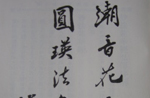 潮音花
圓瑛法